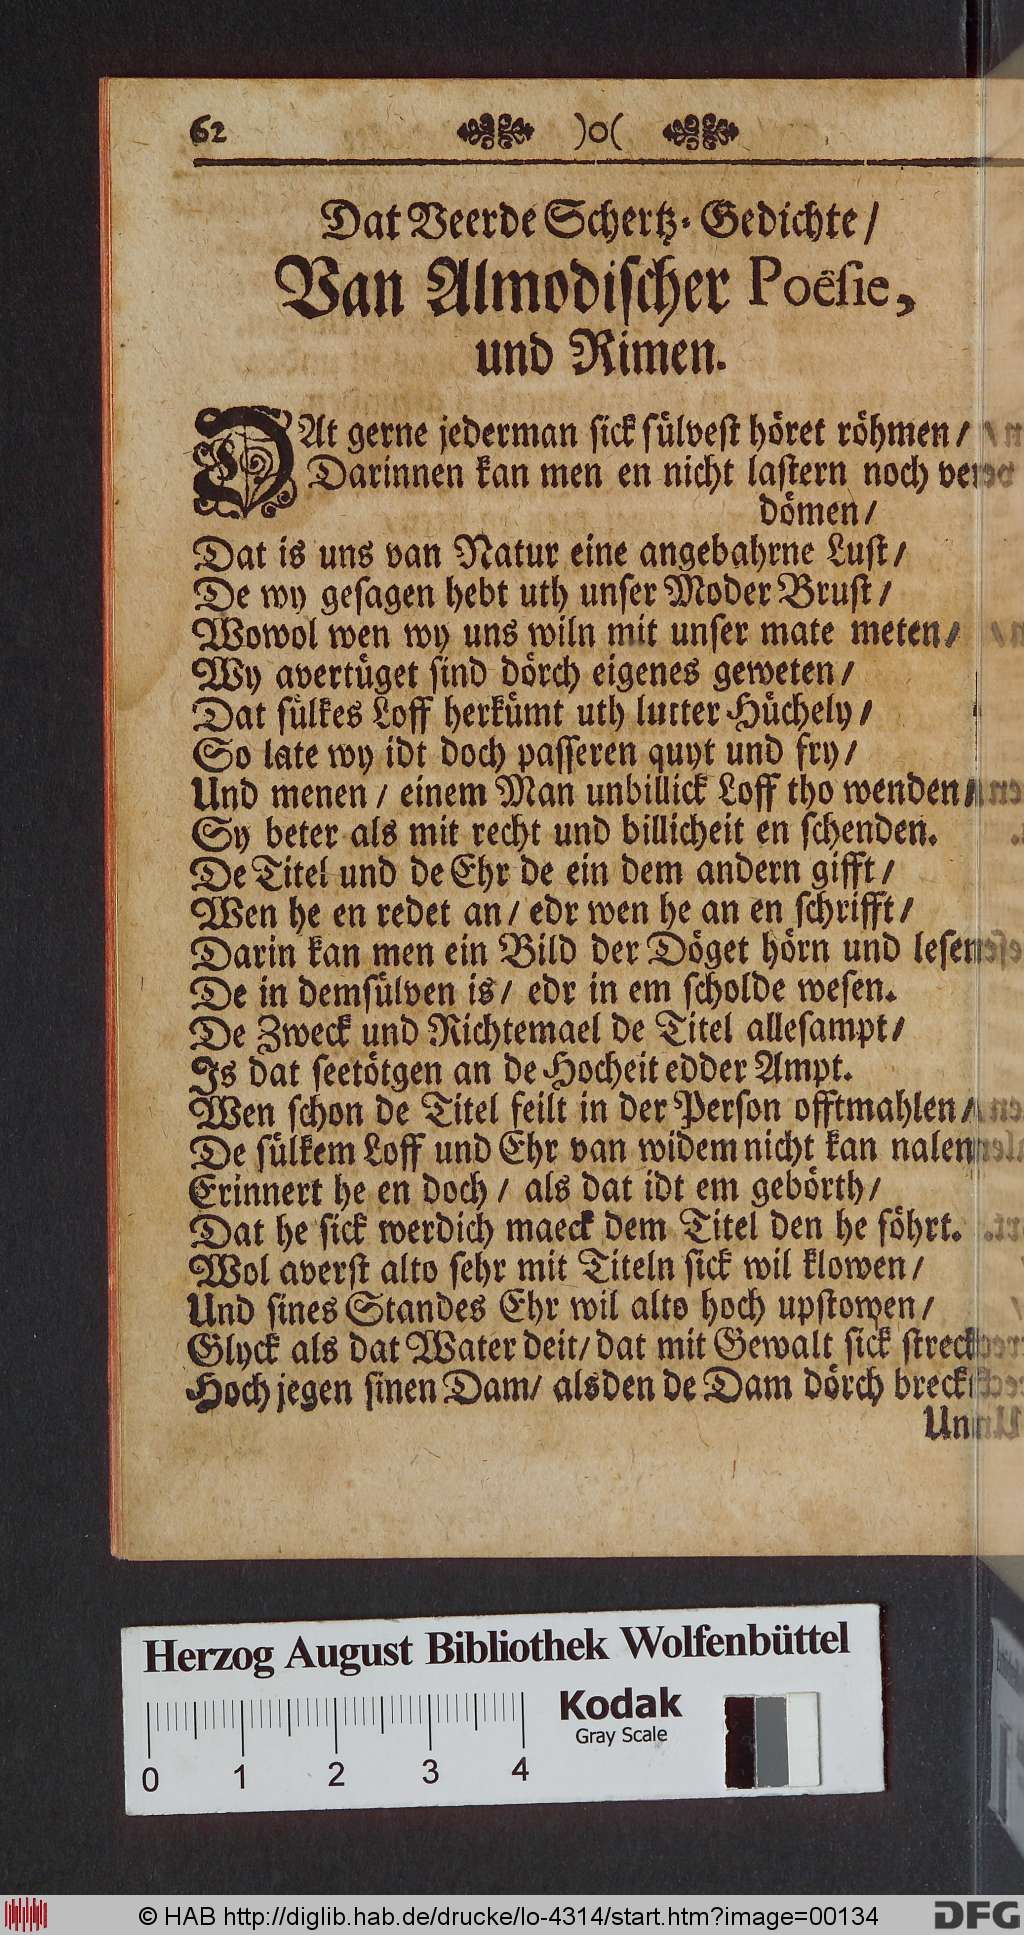 62 )o(
Dat Veerde Schertz-Gedichte/
Van Almodischer Poësie,
und Rimen.
DAt gerne jederman sick sülvest höret röhmen/
Darinnen kan men en nicht lastern noch ver-
dömen/
Dat is uns van Natur eine angebahrne Lust/
De wy gesagen hebt uth unser Moder Brust/
Wowol wen wy uns wiln mit unser mate meten/
Wy avertüget sind dörch eigenes geweten/
Dat sülkes Loff herkümt uth lutter Hüchely/
So late wy idt doch passeren quyt und fry/
Und menen/ einem Man unbillick Loff tho wenden/
Sy beter als mit recht und billicheit en schenden.
De Titel und de Ehr de ein dem andern gifft/
Wen he en redet an/ edr wen he an en schrifft/
Darin kan men ein Bild der Döget hörn und lesen
De in demsülven is/ edr in em scholde wesen.
De Zweck und Richtemael de Titel allesampt/
Is dat seetötgen an de Hocheit edder Ampt.
Wen schon de Titel feilt in der Person offtmahlen/
De sülkem Loff und Ehr van widem nicht kan nalen
Erinnert he en doch/ als dat idt em gebörth/
Dat he sick werdich maeck dem Titel den he föhrt.
Wol averst alto sehr mit Titeln sick wil klowen/
Und sines Standes Ehr wil alto hoch upstowen/
Glyck als dat Water deit/ dat mit Gewalt sick streck
Hoch jegen sinen Dam/ alsden de Dam dörch breckt
Un
Herzog August Bibliothek Wolfenbüttel
Kodak
Gray Scale
0 1 2 3 4
© HAB http://diglib.hab.de/drucke/lo-4314/start.htm?image=00134
DFG